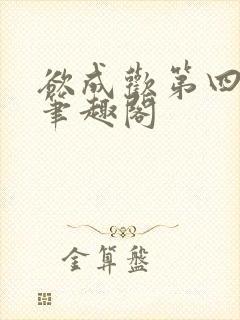 欲成歡第四
筆趣閣
金算盤